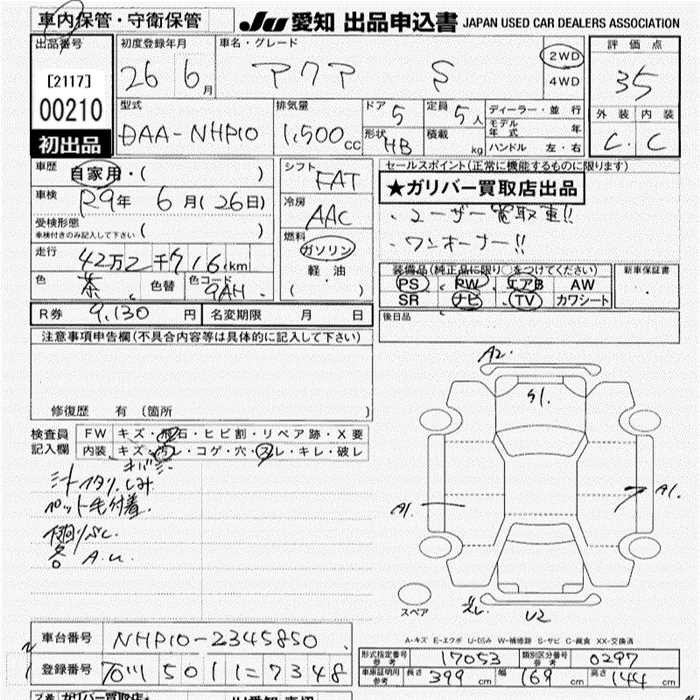 車内保管・守衛保管
JU 愛知 出品申込書 JAPAN USED CAR DEALERS ASSOCIATION
出品番号
[2117]
00210
初出品
初度登録年月
26 6月
車名・グレード
アクア S
2WD
4WD
評価点
3.5
外装 内装
C C
型式
DAA-NHP10
排気量
1,500cc
ドア 5
形状 HB
定員 5人
積載 kg
ディーラー・並行
モデル年式 年
ハンドル 左・右
車歴
自家用・( )
車検
R9年 6月(26日)
受検形態
車検付きのみ記入して下さい ( )
走行
42万2千716km
色 茶 色替 色コード 9AH
シフト
FAT
冷房
AAC
燃料
ガソリン
軽油
( )
セールスポイント(正常に機能するものに限ります)
★ガリバー買取店出品
・ユーザー買取車!!
・ワンオーナー!!
装備品(純正品に限り○をつけてください)
PS PW エアB AW
SR ナビ TV カワシート
新車保証書
R券 9,130円 名変期限 月 日
後日品
注意事項申告欄(不具合内容等は具体的に記入して下さい)
修復歴 有 (箇所 )
検査員
記入欄
FW キズ・飛石・ヒビ割・リペア跡・X要
内装 キズ・汚レ・コゲ・穴・スレ・キレ・破レ
ペット毛付着
各 A.U
A2
S1
A1
A1
U2
スペア
A-キズ E-エクボ U-凹み W-補修跡 S-サビ C-腐食 XX-交換済
車台番号 NHP10-2345850
登録番号 石川 501 に 7348
型式指定番号
参考
17053
類別区分番号
参考
0297
車庫証明用
参考
長さ 399cm 幅 169cm 高さ 144cm
ガリバー買取店